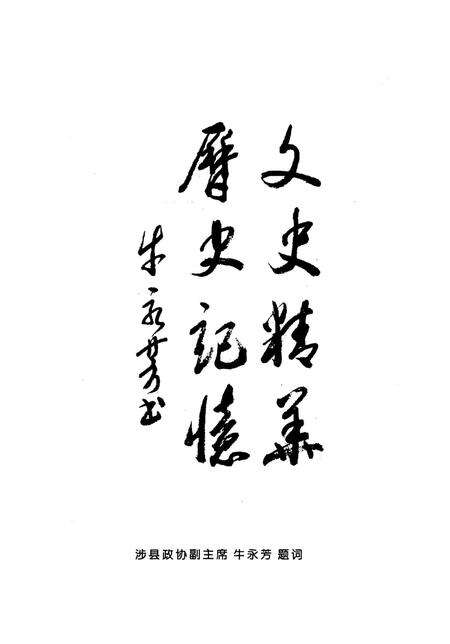 文史精華
歷史記憶
牛永芳书
涉县政协副主席 牛永芳 题词